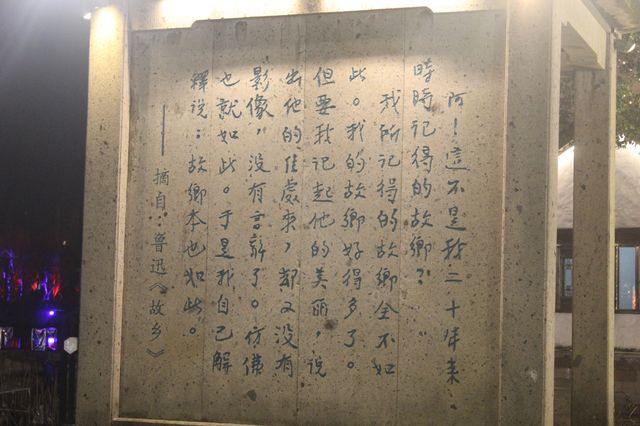 阿！這不是我二十年来
時時记得的故鄉？
我所记得的故鄉全不如
此。我的故鄉好得多了。
但要我记起他的美麗，说
出他的佳處来，却又没有
影像，没有言辭了。仿佛
也就如此。于是我自己解
釋说：故鄉本也如此。
——摘自：鲁迅《故乡》